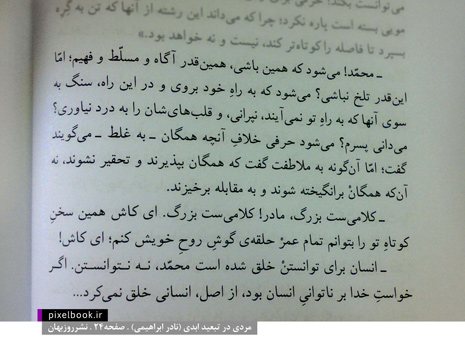 می‌توانست بکند؛ حرفی برای
مویی بسته است پاره نکرد؛ چرا که می‌داند این رشته از آنها که تن به گِرِهِ
بسپرد تا فاصله را کوتاه‌تر کند، نیست و نه خواهد بود.»
ـ محمّد! می‌شود که همین باشی، همین‌قدر آگاه و مسلّط و فهیم؛ امّا
این‌قدر تلخ نباشی؟ می‌شود که به راهِ خود بروی و در این راه، سنگ به
سوی آنها که به راهِ تو نمی‌آیند، نپرانی، و قلب‌های‌شان را به درد نیاوری؟
می‌دانی پسرم؟ می‌شود حرفی خلافِ آنچه همگان ـ به غلط ـ می‌گویند
گفت؛ امّا آن‌گونه به ملاطفت گفت که همگان بپذیرند و تحقیر نشوند، نه
آن‌که همگانْ برانگیخته شوند و به مقابله برخیزند.
ـ کلامی‌ست بزرگ، مادر! کلامی‌ست بزرگ. ای کاش همین سخنِ
کوتاهِ تو را بتوانم تمام عمرْ حلقه‌ی گوشِ روحِ خویش کنم؛ ای کاش!
ـ انسان برای توانستنْ خلق شده است محمّد، نه نتوانستن. اگر
خواستِ خدا بر ناتوانیِ انسان بود، از اصل، انسانی خلق نمی‌کرد...
pixelbook.ir
مردی در تبعید ابدی (نادر ابراهیمی) . صفحه۲۴ . نشرروزبهان